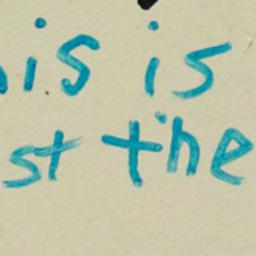 is is
st the